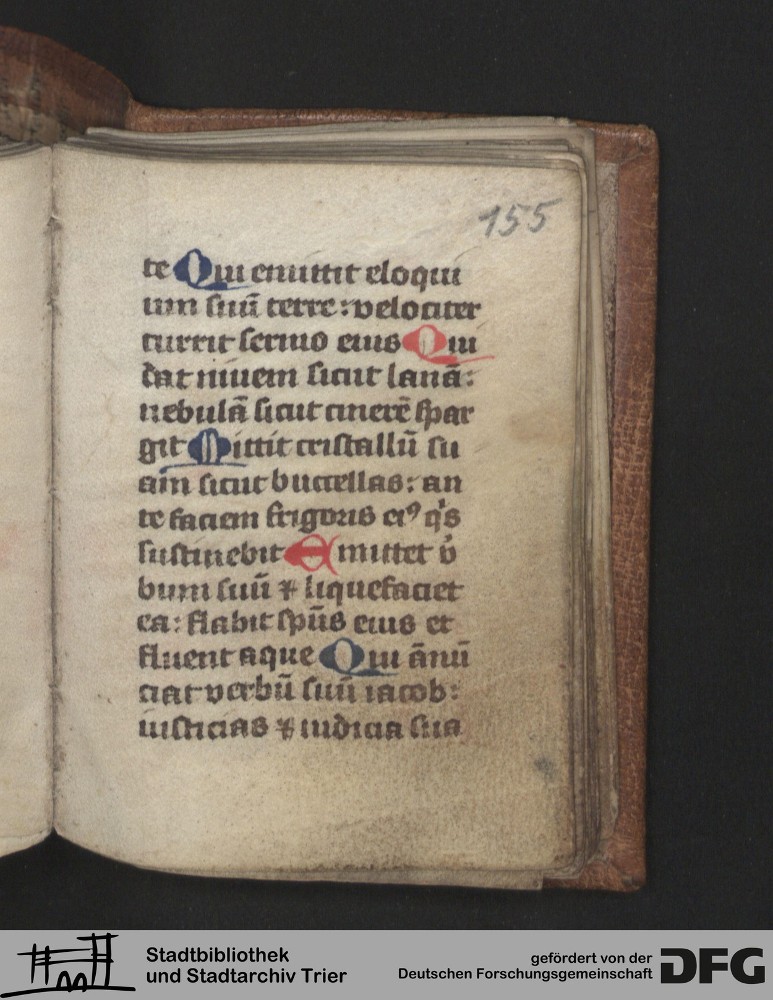 155
te Qui emittit eloqui
um suū terre : velociter
currit sermo eius Qui
dat nivem sicut lanā :
nebulā sicut cinerē spar
git Mittit cristallū su
am sicut buccellas : an
te faciem frigoris eiꝰ q̇s
sustinebit Emittet v̓
bum suū ⁊ liquefaciet
ea : flabit sp̄us eius et
fluent aque Qui ānū
ciat verbū suū iacob :
iusticias ⁊ iudicia sua
Stadtbibliothek
und Stadtarchiv Trier
gefördert von der
Deutschen Forschungsgemeinschaft
DFG